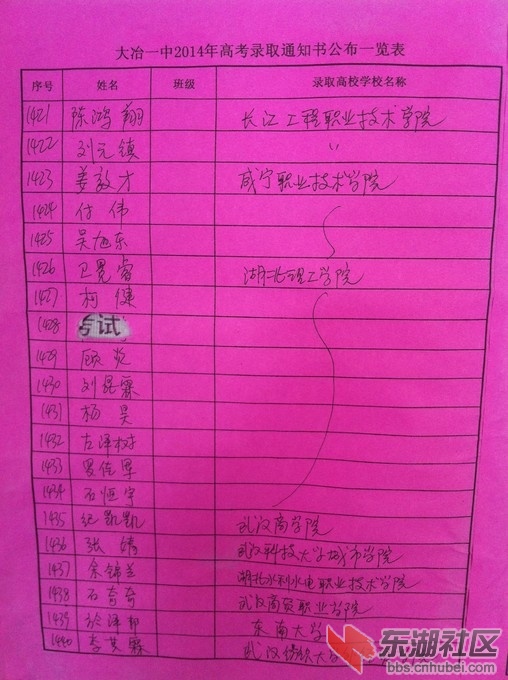 大冶一中2014年高考录取通知书公布一览表
序号 姓名 班级 录取高校学校名称
1421 陈鸿翔 长江工程职业技术学院
1422 刘元镇 〃
1423 姜 才 咸宁职业技术学院
1424 付伟
1425 吴旭东
1426 卫 睿 湖北理工学院
1427 柯健
1428 考试
1429 顾炎
1430 刘 霖
1431 杨昊
1432 左泽树
1433 罗佐军
1434 石恒宇
1435 纪凯凯 武汉商学院
1436 张婧 武汉科技大学城市学院
1437 余锦兰 湖北水利水电职业技术学院
1438 石奇奇 武汉商贸职业学院
1439 泽邦 东南大学
1440 李 霖 武汉纺织大
东湖社区
bbs.cnhubei.com